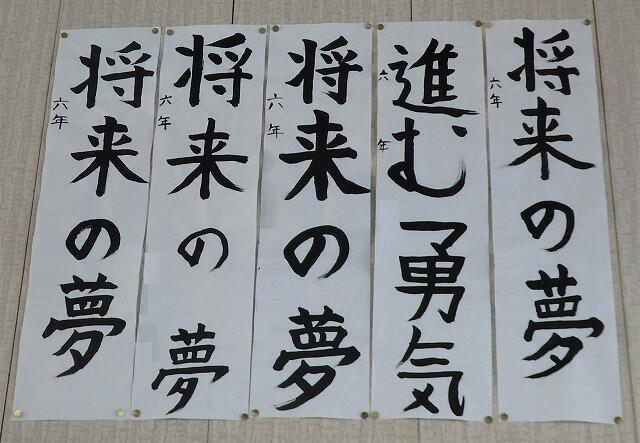 将来の夢
六年
進む勇気
六年
将来の夢
六年
将来の夢
六年
将来の夢
六年